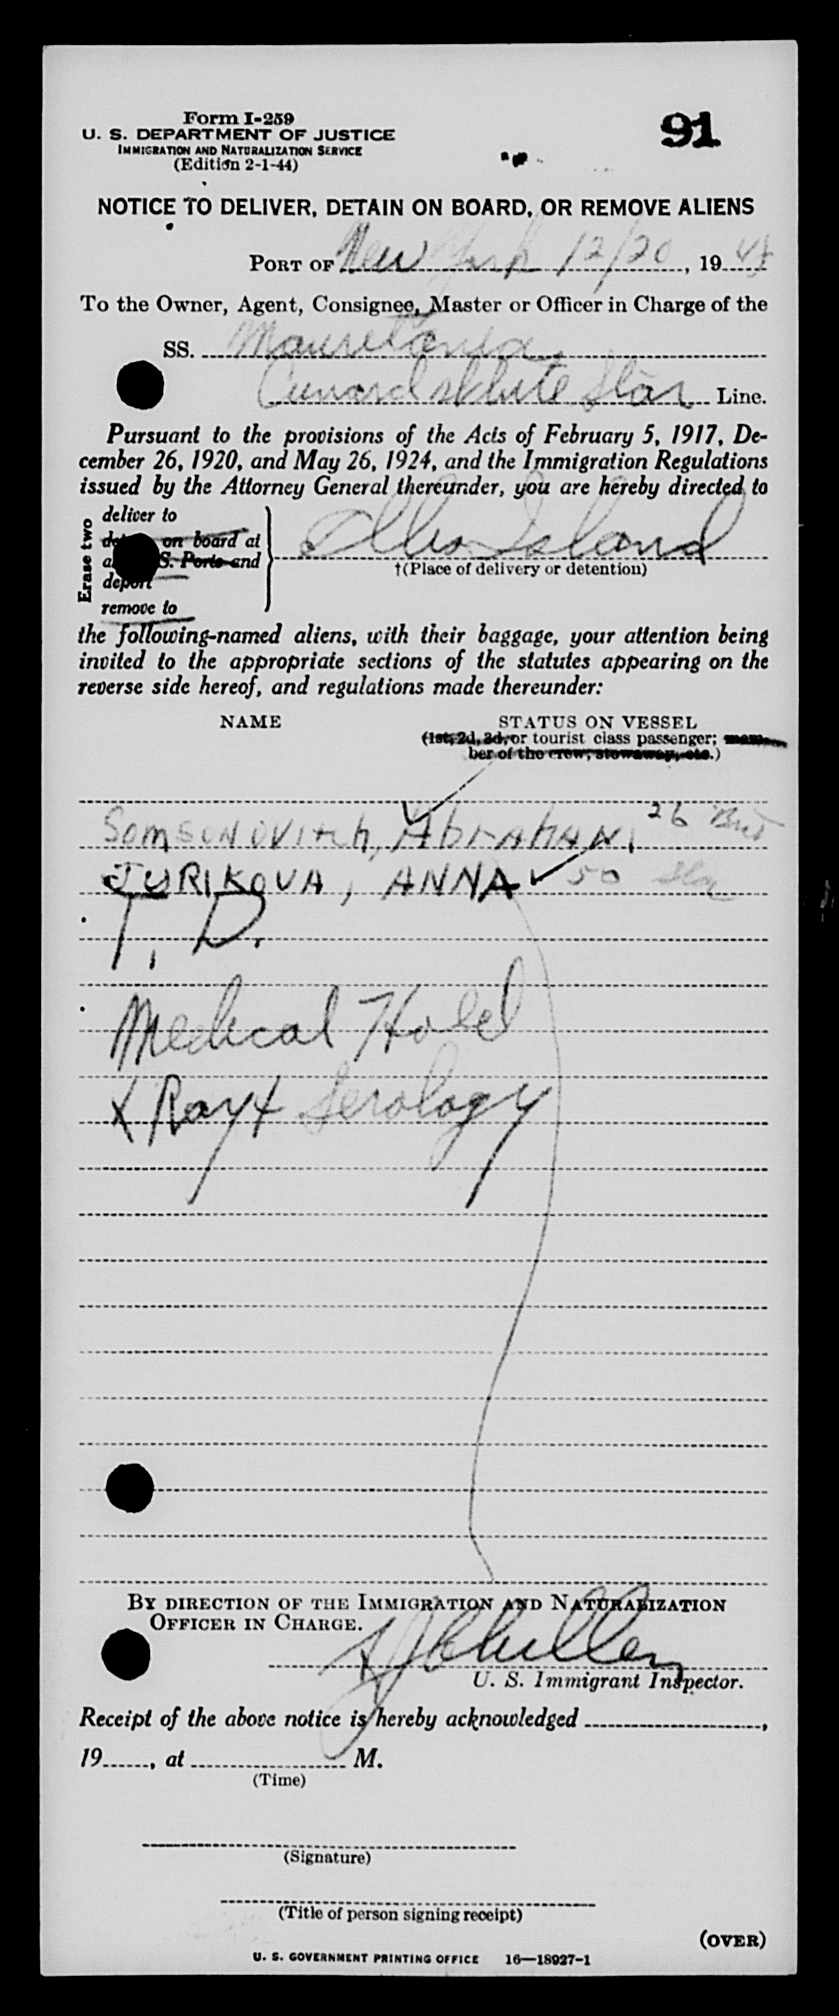 Form I-259
91
U. S. DEPARTMENT OF JUSTICE
IMMIGRATION AND NATURALIZATION SERVICE
(Edition 2-1-44)
NOTICE TO DELIVER, DETAIN ON BOARD, OR REMOVE ALIENS
PORT OF New York 12/20, 19
To the Owner, Agent, Consignee, Master or Officer in Charge of the
SS. Mauretania
Cunard White Star Line.
Pursuant to the provisions of the Acts of February 5, 1917, De-
cember 26, 1920, and May 26, 1924, and the Immigration Regulations
issued by the Attorney General thereunder, you are hereby directed to
Erase two
deliver to
on board at
S. Ports and
deport
remove to
Ellis Island
†(Place of delivery or detention)
the following-named aliens, with their baggage, your attention being
invited to the appropriate sections of the statutes appearing on the
reverse side hereof, and regulations made thereunder:
NAME
STATUS ON VESSEL
(1st, 2d, 3d, or tourist class passenger; mem-
ber of the crew, stowaway, etc.)
SOMSONOVITCH, ABRAHAM 26
JURIKOVA, ANNA 50
T. D.
Medical Hold
X Ray + Serology
BY DIRECTION OF THE IMMIGRATION AND NATURALIZATION
OFFICER IN CHARGE.
U. S. Immigrant Inspector.
Receipt of the above notice is hereby acknowledged ,
19 , at M.
(Time)
(Signature)
(Title of person signing receipt)
(OVER)
U. S. GOVERNMENT PRINTING OFFICE 16—18927-1